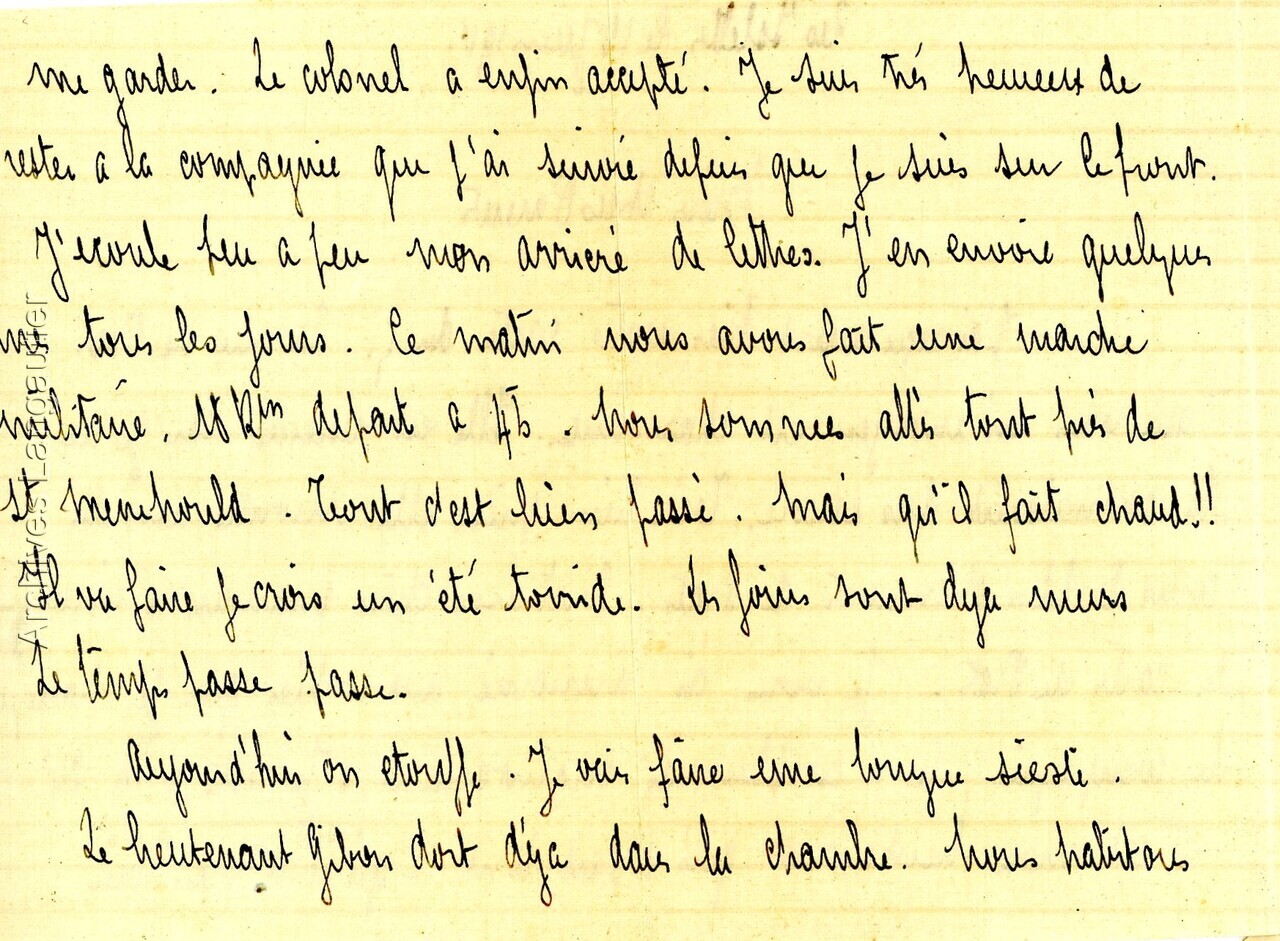 me garder. Le colonel a enfin accepté. Je suis très heureux de
rester a la compagnie que j'ai suivie depuis que je suis sur le front.
J'ecoule peu a peu mon arrieré de lettres. J'en envoie quelques
tous les jours. Ce matin nous avons fait une marche
militaire. 18 Km depart a 4h. Nous sommes allés tout près de
St Menehould. Tout c'est bien passé. Mais qu'il fait chaud!!
Il va faire je crois un été torride. Les foins sont deja murs
Le temps passe passe.
Aujourd'hui on etouffe. Je vais faire une longue sieste.
Le lieutenant Gibon dort déja dans la chambre. Nous habitons
Archives Laugaudier